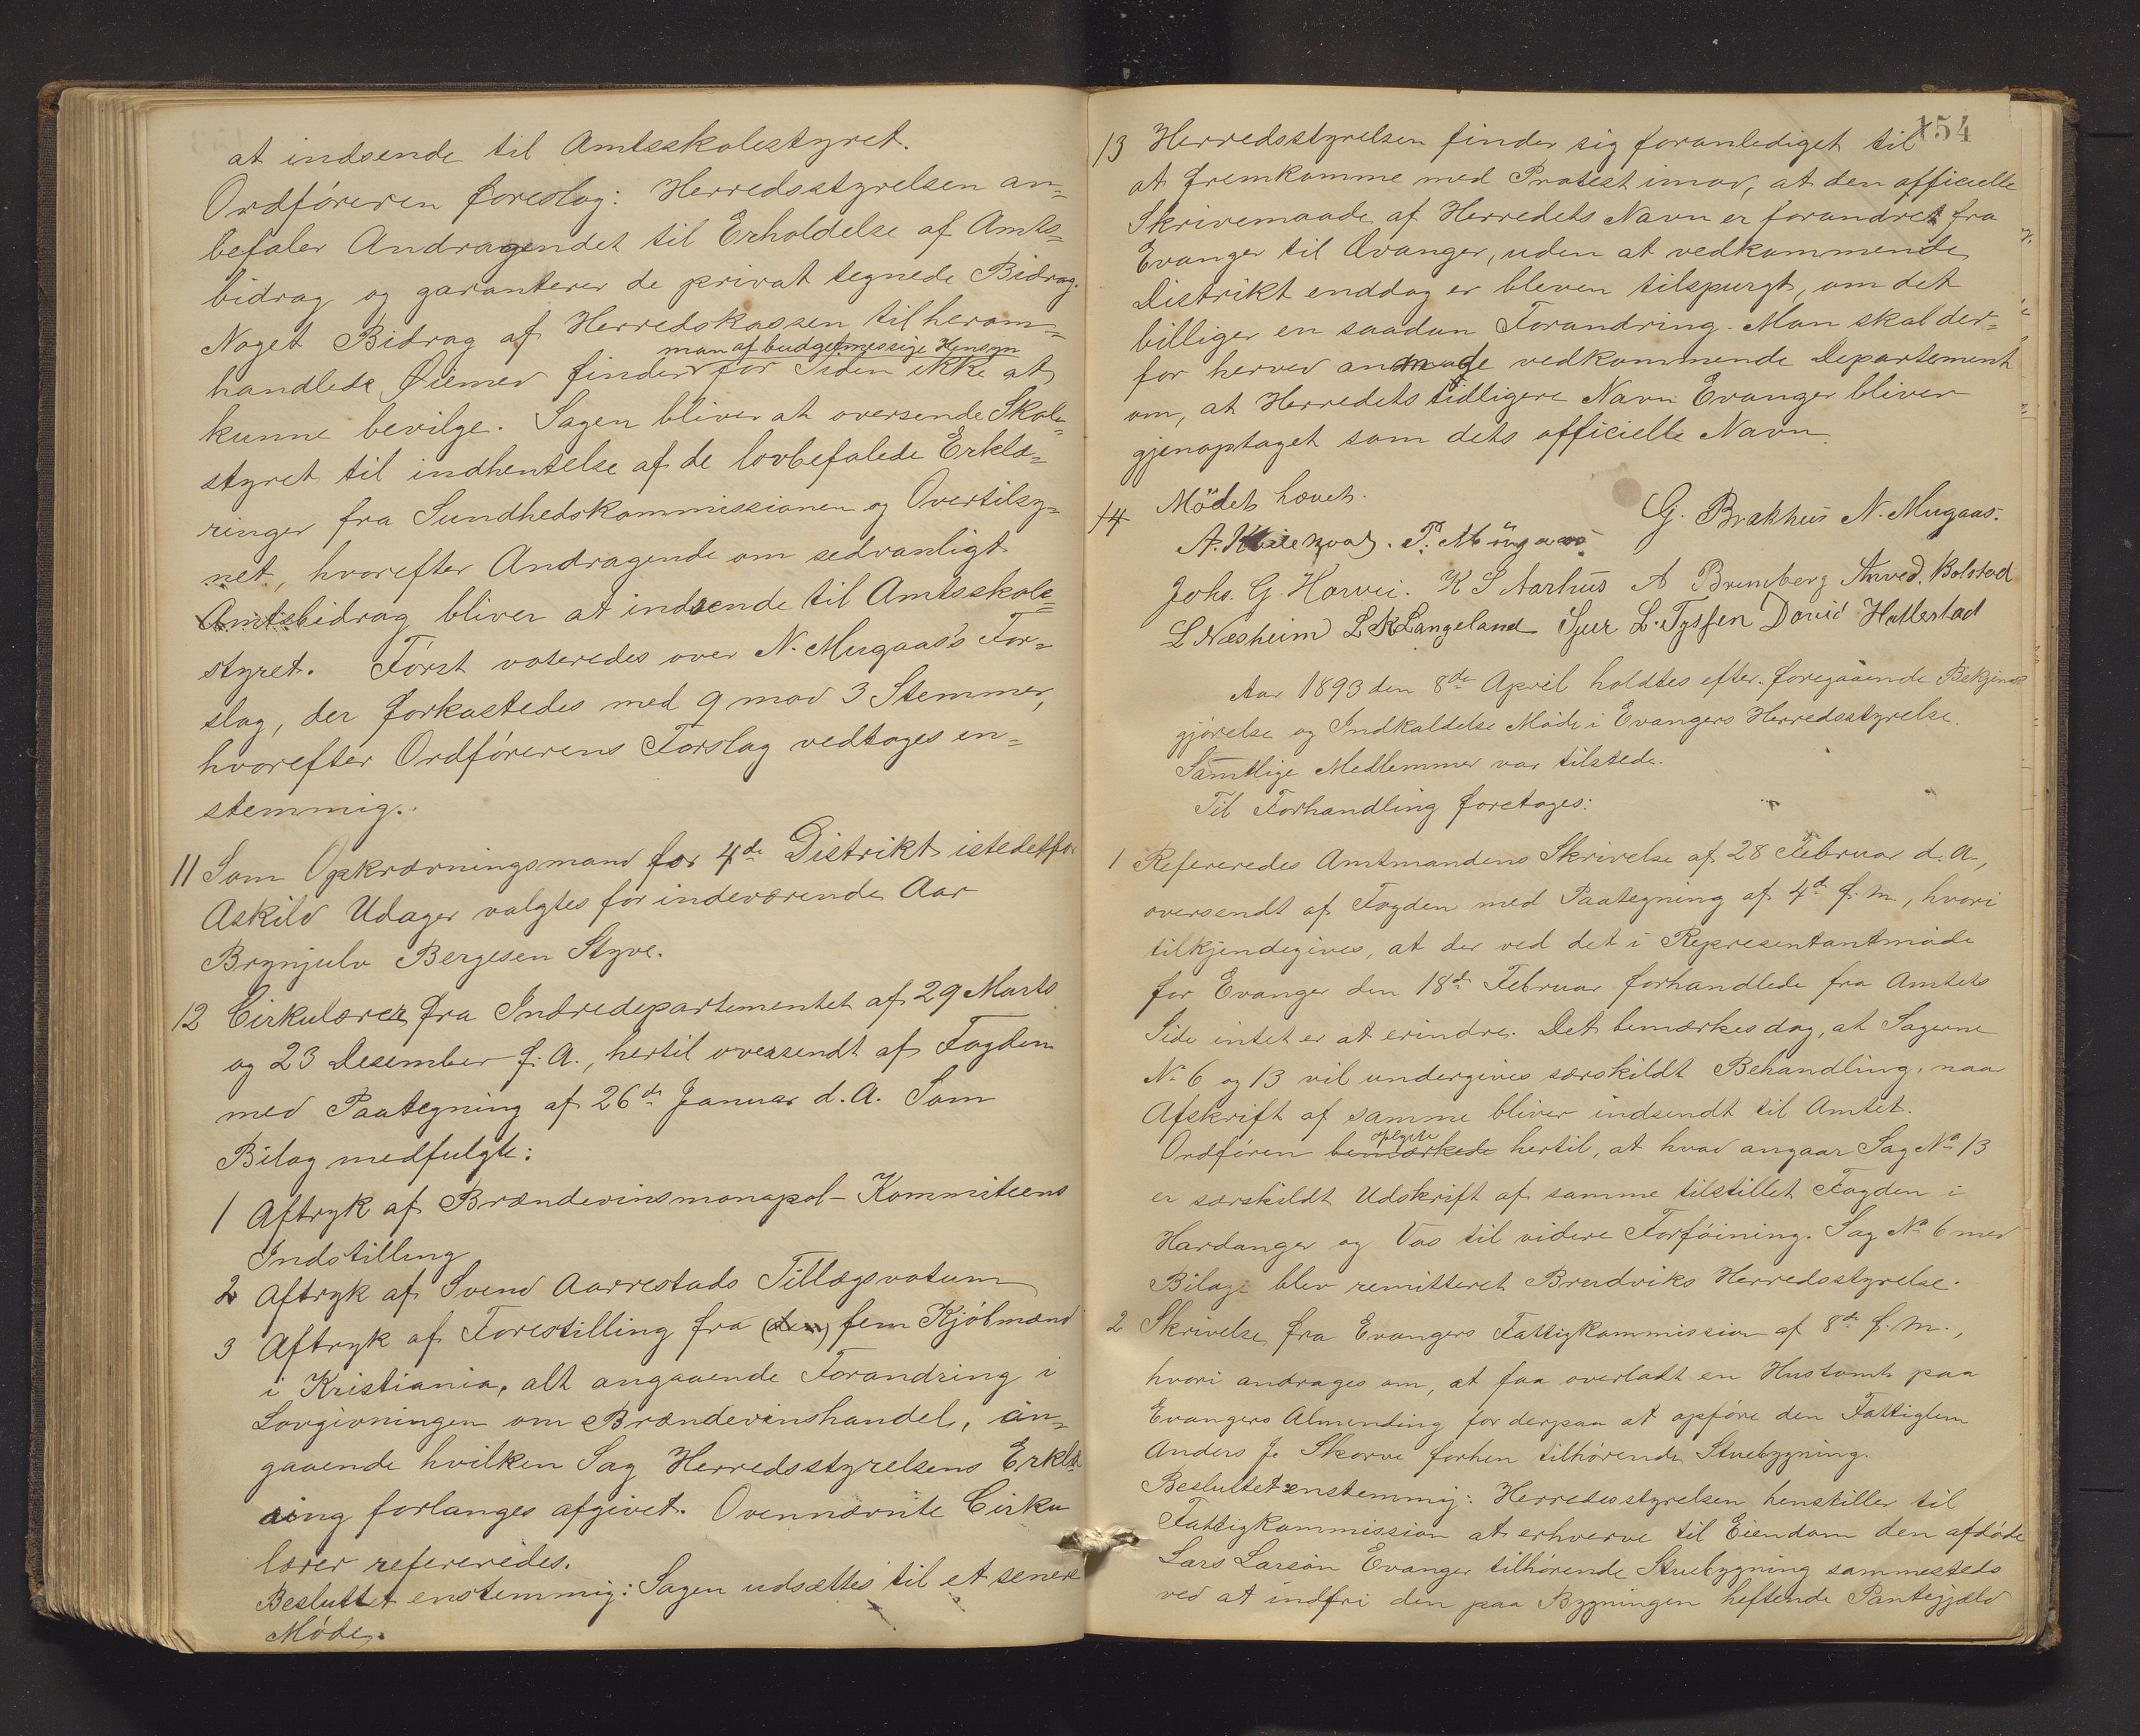 at indsende til Amtsskolestyret.
Ordføreren foreslog: Herredsstyrelsen an=
befaler Andragendet til Erholdelse af Amts=
bidrag og garanterer de privat tegnede Bidrag.
Noget Bidrag af Herredskassen til herom=
man af budgetmessige Hensyn
handlede Øiemed finder for Tiden ikke at
kunne bevilge. Sagen bliver at oversende Skole=
styret til indhentelse af de lovbefalede Erklæ=
ringer fra Sundhedskommissionen og Overtilsy=
net, hvorefter Andragende om sedvanligt
Amtsbidrag bliver at indsende til Amtsskole=
styret. Først voteredes over N. Mugaas's For=
slag, der forkastedes med 9 mod 3 Stemmer,
hvorefter Ordførerens Forslag vedtoges en=
stemmig.
11 Som Opkrævningsmand for 4de Distrikt istedetfor
Askild Udager valgtes for indeværende Aar
Brynjulv Bergesen Styve.
12 Cirkulærer fra Indredepartementet af 29 Marts
og 23 Desember f. A., hertil oversendt af Fogden
med Paategning af 26de Januar d. A. Som
Bilag medfulgte:
1 Aftryk af Brændevinsmonopol-Kommiteens
Indstilling
2 Aftryk af Svend Aarrestads Tillægsvotum
3 Aftryk af Forestilling fra (den) fem Kjøbmænd
i Kristiania, alt angaaende Forandring i
Lovgivningen om Brændevinshandel, an=
gaaende hvilken Sag Herredsstyrelsens Erklæ
ring forlanges afgivet. Ovennævnte Cirku
lærer refereredes.
Besluttet enstemmig: Sagen udsættes til et senere
Møde.
154
13 Herredsstyrelsen finder sig foranlediget til
at fremkomme med Protest imod, at den officielle
Skrivemaade af Herredets Navn er forandret fra
Evanger til Ævanger, uden at vedkommende
Distrikt enddog er bleven tilspurgt, om det
billiger en saadan Forandring. Man skal der=
for herved anmode vedkommende Departement
om, at Herredets tidligere Navn Evanger bliver
gjenoptaget som dets officielle Navn.
14 Mödet hævet.
G. Brakhus N. Mugaas.
A. P. Mügaas
Johs. G. Horvei. K S Aarhus A Brunborg Anved. Bolstad
L Næsheim L K Langeland Sjur L. Tyssen David Hallestad
Aar 1893 den 8de April holdtes efter foregaaende Bekjendt
gjørelse og Indkaldelse Møde i Evangers Herredsstyrelse.
Samtlige Medlemmer var tilstede.
Til Forhandling foretoges:
1 Refereredes Amtmandens Skrivelse af 28 Februar d. A.,
oversendt af Fogden med Paategning af 4de f. m., hvori
tilkjendegives, at der ved det i Representantmøde
for Evanger den 18de Februar forhandlede fra Amtets
Side intet er at erindre. Det bemærkes dog, at Sagerne
No 6 og 13 vil undergives særskildt Behandling, naar
Afskrift af samme bliver indsendt til Amtet.
oplyste
Ordføren bemærkede hertil, at hvad angaar Sag No 13
er særskildt Udskrift af samme tilstillet Fogden i
Hardanger og Vos til videre Forføining. Sag No 6 med
Bilage blev remitteret Bruvviks Herredsstyrelse.
2 Skrivelse fra Evangers Fattigkommission af 8de f. m.,
hvori andrages om, at faa overladt en Hustomt paa
Evangers Almending for derpaa at opføre den Fattiglem
Anders J. Skorve forhen tilhørende Stuebygning.
Besluttet enstemmig: Herredsstyrelsen henstiller til
Fattigkommission at erhverve til Eiendom den afdøde
Lars Larsøn Evanger tilhørende Stuebygning sammesteds
ved at indfri den paa Bygningen heftende Pantegjæld